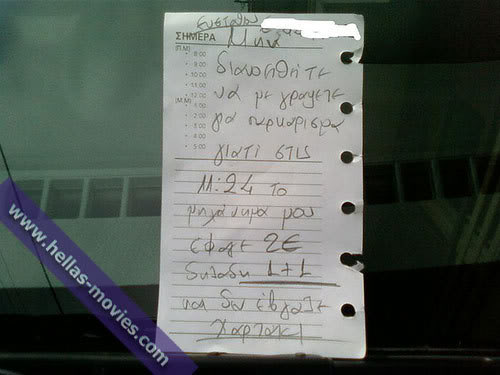 Ευσταθ
ΣΗΜΕΡΑ Μην
(Π.Μ) 8:00
9:00 διανοηθητε
10:00
11:00 να με γραψετε
12:00
(Μ.Μ) 1:00
2:00 για παρκαρισμα
3:00
4:00
5:00 γιατί στις
11:24 το
μηχάνημα μου
έφαγε 2€
δηλαδη 1+1
και δεν έβγαζε
χαρτακι
www.hellas-movies.com